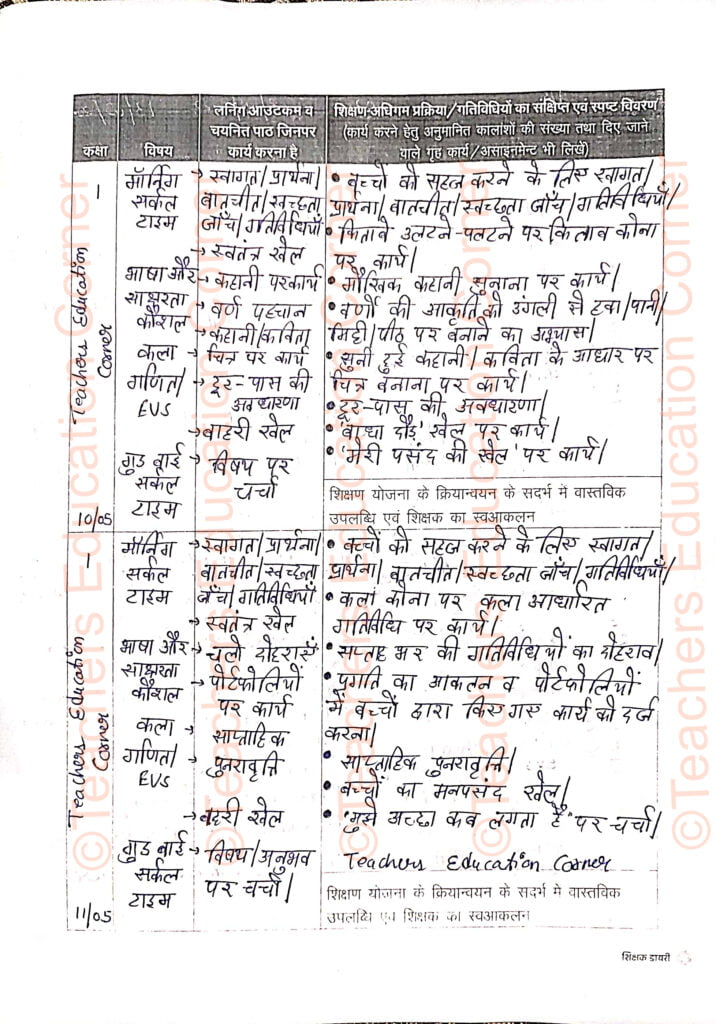 कक्षा
विषय
लर्निंग आउटकम व
चयनित पाठ जिनपर
कार्य करना है
शिक्षण-अधिगम प्रक्रिया/गतिविधियों का संक्षिप्त एवं स्पष्ट विवरण
(कार्य करने हेतु अनुमानित कालांशों की संख्या तथा दिए जाने
वाले गृह कार्य/असाइनमेन्ट भी लिखें)
1
Teachers Education
Corner
10/05
मॉर्निंग
सर्कल
टाइम
भाषा और
साक्षरता
कौशल
कला
गणित/
EVS
गुड बाई
सर्कल
टाइम
→ स्वागत/प्रार्थना/
बातचीत/स्वच्छता
जाँच/गतिविधियाँ
→ स्वतंत्र खेल
→ कहानी पर कार्य
→ वर्ण पहचान
→ कहानी/कविता
→ चित्र पर कार्य
→ दूर-पास की
अवधारणा
→ बाहरी खेल
→ विषय पर
चर्चा
• बच्चों को सहज करने के लिए स्वागत/
प्रार्थना/बातचीत/स्वच्छता जाँच/गतिविधियाँ/
• किताबें उलटने-पलटने पर किताब कोना
पर कार्य/
• मौखिक कहानी सुनाना पर कार्य/
• वर्णों की आकृति को उंगली से हवा/पानी/
मिट्टी/पीठ पर बनाने का अभ्यास/
• सुनी हुई कहानी/कविता के आधार पर
चित्र बनाना पर कार्य/
• दूर-पास की अवधारणा/
• 'बाधा दौड़' खेल पर कार्य/
• 'मेरी पसंद की खेल' पर कार्य/
शिक्षण योजना के क्रियान्वयन के सदर्भ में वास्तविक
उपलब्धि एवं शिक्षक का स्वआकलन
1
Teachers Education
Corner
11/05
मॉर्निंग
सर्कल
टाइम
भाषा और
साक्षरता
कौशल
कला
गणित/
EVS
गुड बाई
सर्कल
टाइम
→ स्वागत/प्रार्थना/
बातचीत/स्वच्छता
जाँच/गतिविधियाँ
→ स्वतंत्र खेल
→ चलो दोहराएं
→ पोर्टफोलियो
पर कार्य
→ साप्ताहिक
पुनरावृत्ति
→ बहरी खेल
→ विषय/अनुभव
पर चर्चा/
• बच्चों को सहज करने के लिए स्वागत/
प्रार्थना/बातचीत/स्वच्छता जाँच/गतिविधियाँ/
• कला कोना पर कला आधारित
गतिविधि पर कार्य/
• सप्ताह भर की गतिविधियों का दोहराव/
• प्रगति का आकलन व पोर्टफोलियों
में बच्चों द्वारा किए गए कार्य को दर्ज
करना/
• साप्ताहिक पुनरावृत्ति/
• बच्चों का मनपसंद खेल/
• "मुझे अच्छा कब लगता है" पर चर्चा/
Teachers Education Corner
शिक्षण योजना के क्रियान्वयन के सदर्भ में वास्तविक
उपलब्धि एवं शिक्षक का स्वआकलन
शिक्षक डायरी
©Teachers Education Corner
©Teachers Education Corner
©Teachers Education Corner
©Teachers Education Corner
©Teachers Education Corner